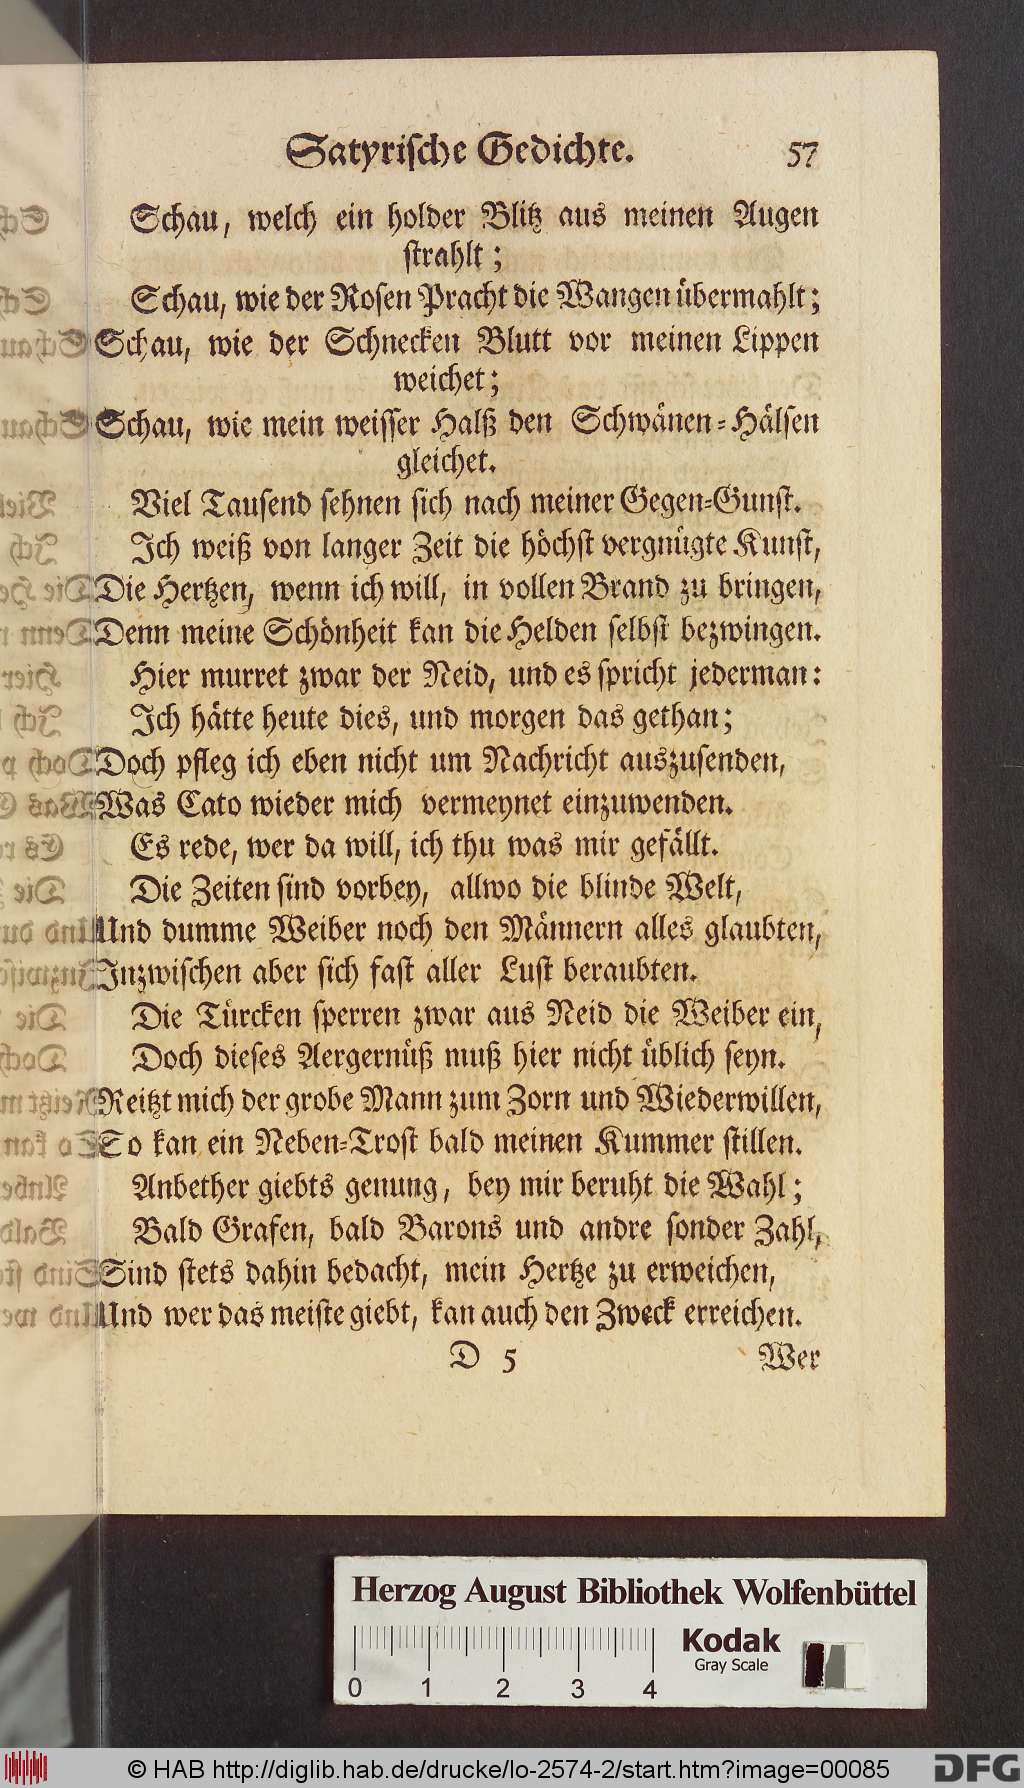 Satyrische Gedichte. 57
Schau, welch ein holder Blitz aus meinen Augen
strahlt;
Schau, wie der Rosen Pracht die Wangen übermahlt;
Schau, wie der Schnecken Blutt vor meinen Lippen
weichet;
Schau, wie mein weisser Halß den Schwänen-Hälsen
gleichet.
Viel Tausend sehnen sich nach meiner Gegen-Gunst.
Ich weiß von langer Zeit die höchst vergnügte Kunst,
Die Hertzen, wenn ich will, in vollen Brand zu bringen,
Denn meine Schönheit kan die Helden selbst bezwingen.
Hier murret zwar der Neid, und es spricht jederman:
Ich hätte heute dies, und morgen das gethan;
Doch pfleg ich eben nicht um Nachricht auszusenden,
Was Cato wieder mich vermeynet einzuwenden.
Es rede, wer da will, ich thu was mir gefällt.
Die Zeiten sind vorbey, allwo die blinde Welt,
Und dumme Weiber noch den Männern alles glaubten,
Inzwischen aber sich fast aller Lust beraubten.
Die Türcken sperren zwar aus Neid die Weiber ein,
Doch dieses Aergernüß muß hier nicht üblich seyn.
Reitzt mich der grobe Mann zum Zorn und Wiederwillen,
So kan ein Neben-Trost bald meinen Kummer stillen.
Anbether giebts genung, bey mir beruht die Wahl;
Bald Grafen, bald Barons und andre sonder Zahl,
Sind stets dahin bedacht, mein Hertze zu erweichen,
Und wer das meiste giebt, kan auch den Zweck erreichen.
D 5 Wer
Herzog August Bibliothek Wolfenbüttel
Kodak
Gray Scale
0 1 2 3 4
© HAB http://diglib.hab.de/drucke/lo-2574-2/start.htm?image=00085
DFG